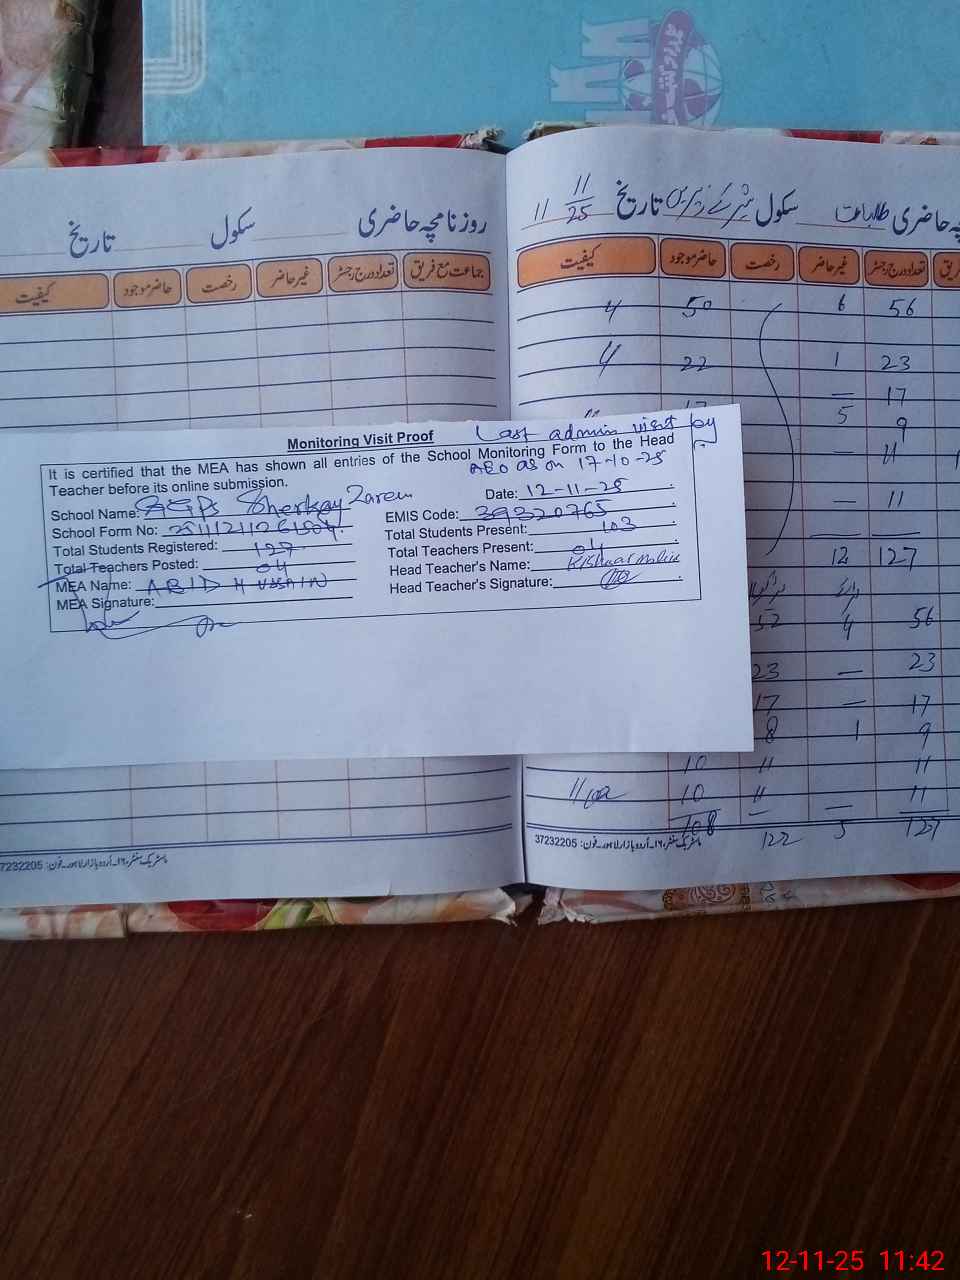 KK
روزنامچہ حاضری سکول تاریخ
جماعت مع فریق تعداد درج رجسٹر غیر حاضر رخصت حاضر موجود کیفیت
حاضری طالبات سکول تاریخ 11 11/25
تعداد درج رجسٹر غیر حاضر رخصت حاضر موجود کیفیت
56 6 50 4
23 1 22 4
17 —
9 5
11 —
11 —
127 12
56 4 52
23 — 23
17 — 17
9 1 8
11 11 10
11 — 11 10
127 5 122 108
37232205
7232205
Monitoring Visit Proof
Last admin visit by
AEO as on 17-10-25
It is certified that the MEA has shown all entries of the School Monitoring Form to the Head
Teacher before its online submission.
School Name: GGPS Sherkay Zareen Date: 12-11-25
School Form No: EMIS Code: 39320765
Total Students Registered: 127 Total Students Present: 103
Total Teachers Posted: 04 Total Teachers Present: 04
MEA Name: ABID HUSSAIN Head Teacher's Name:
MEA Signature: Head Teacher's Signature:
12-11-25 11:42